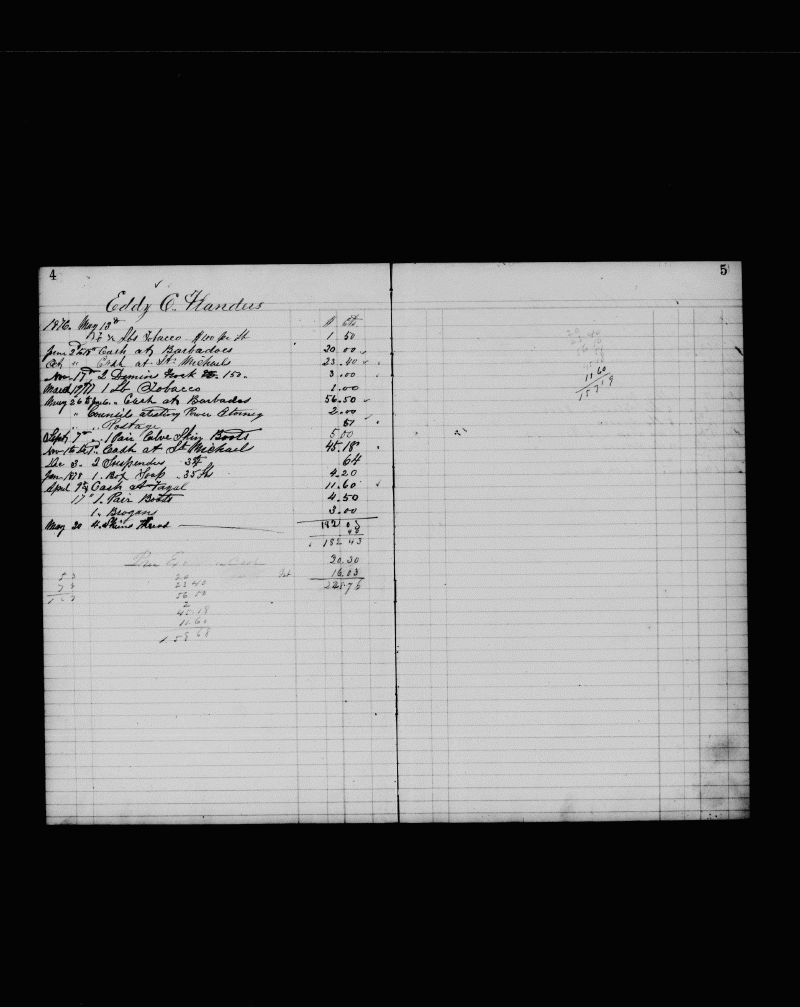 4
Eddy C. Flanders
$ cts
1876. May 13th
1 1/2 lbs Tobacco $1.00 per lb 1 50
Cash at Barbadoes 20.00
Oct " Cash at St Michaels 23.40
Nov. 17th 2 Denims Frock 1.50. 3.00
March 1877 1 lb Tobacco 1.00
Cash at Barbados 56.50
" Counsils atesting Power Atorney 2.00
" " Postage 51
Sept 7th " 1 Pair Calve Skin Boots 5 00
Cash at St Michael 45.18
Dec 3. 2 Suspenders 64
Jan 1878 1. Box Soap 35 lbs 4.20
April Cash at Fayal 11.60
17" 1. Pair Boots 4.50
1. Brogans 3.00
May 20 4. Skeins Thread
182 03
182 43
20.30
16.03
20
23 40
56 50
2
45.18
11.60
1.58 68
5
11 60
157 19